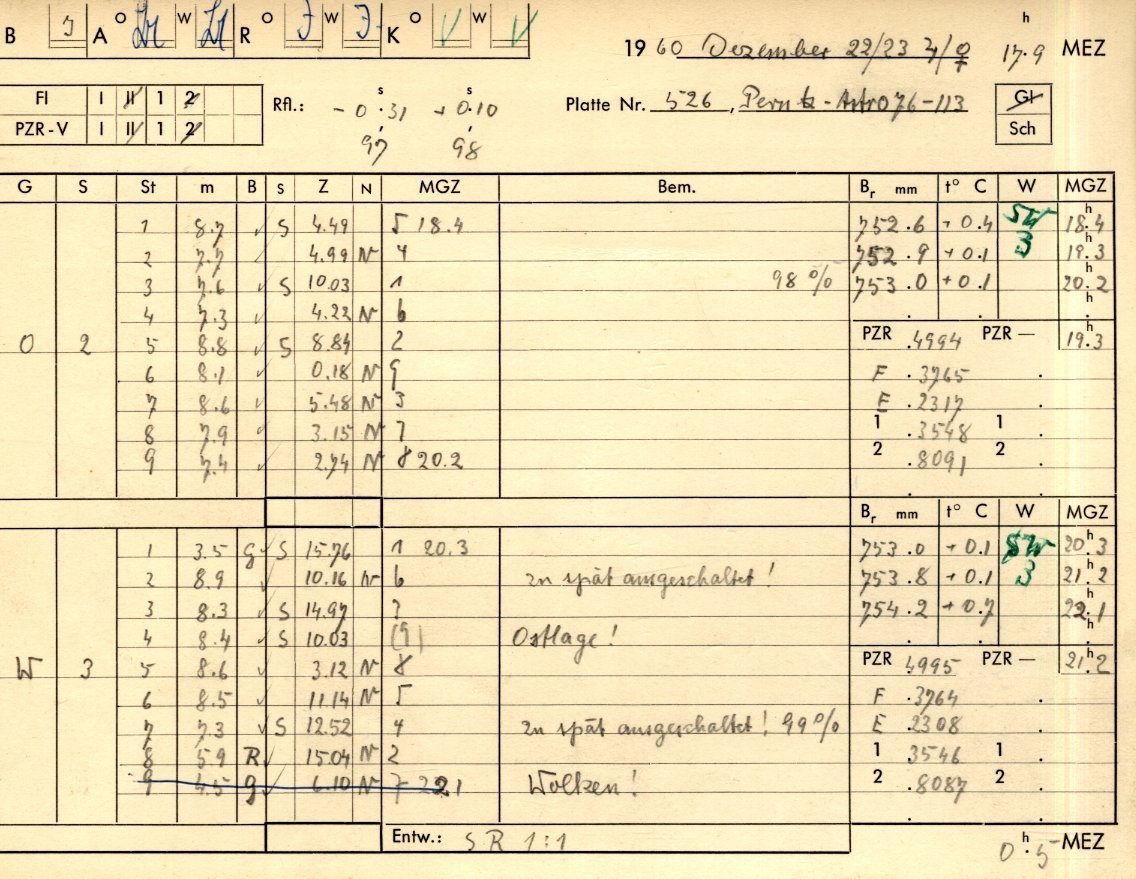 B J A O Lr W Lr R O J W J K O V W V
h
19 60 Dezember 22/23 ♃/♀ 17.9 MEZ
FI I II 1 2
PZR-V I II 1 2
Rfl.: - 0.31 s + 0.10 s
97 98
Platte Nr. 526, Perutz-Astro 76-113
Gl
Sch
G S St m B S Z N MGZ Bem. Br mm t° C W MGZ
1 8.7 ✓ S 4.49 5 18.4 752.6 +0.4 SW 18.4
2 7.7 ✓ 4.99 N 4 752.9 +0.1 3 19.3
3 7.6 ✓ S 10.03 1 98 % 753.0 +0.1 20.2
4 7.3 ✓ 4.22 N 6
O 2 5 8.8 ✓ S 8.84 2 PZR .4994 PZR — 19.3
6 8.1 ✓ 0.18 N 9 F .3765
7 8.6 ✓ 5.48 N 3 E .2317
8 7.9 ✓ 3.15 N 7 1 .3548 1
9 7.4 ✓ 2.74 N 8 20.2 2 .8091 2
Br mm t° C W MGZ
1 3.5 g S 15.76 1 20.3 753.0 +0.1 SW 20.3
2 8.9 ✓ 10.16 N 6 zu spät ausgeschaltet! 753.8 +0.1 3 21.2
3 8.3 ✓ S 14.97 ? 754.2 +0.7 22.1
4 8.4 ✓ S 10.03 (9) Ostlage!
W 3 5 8.6 ✓ 3.12 N 8 PZR .4995 PZR — 21.2
6 8.5 ✓ 11.14 N 5 F .3764
7 7.3 ✓ S 12.52 4 zu spät ausgeschaltet! 99% E .2308
8 5.9 R ✓ 15.04 N 2 1 3546 1
9 4.5 g ✓ 6.10 N 7 22.1 Wolken! 2 .8087 2
Entw.: SR 1:1
0 h .5 MEZ